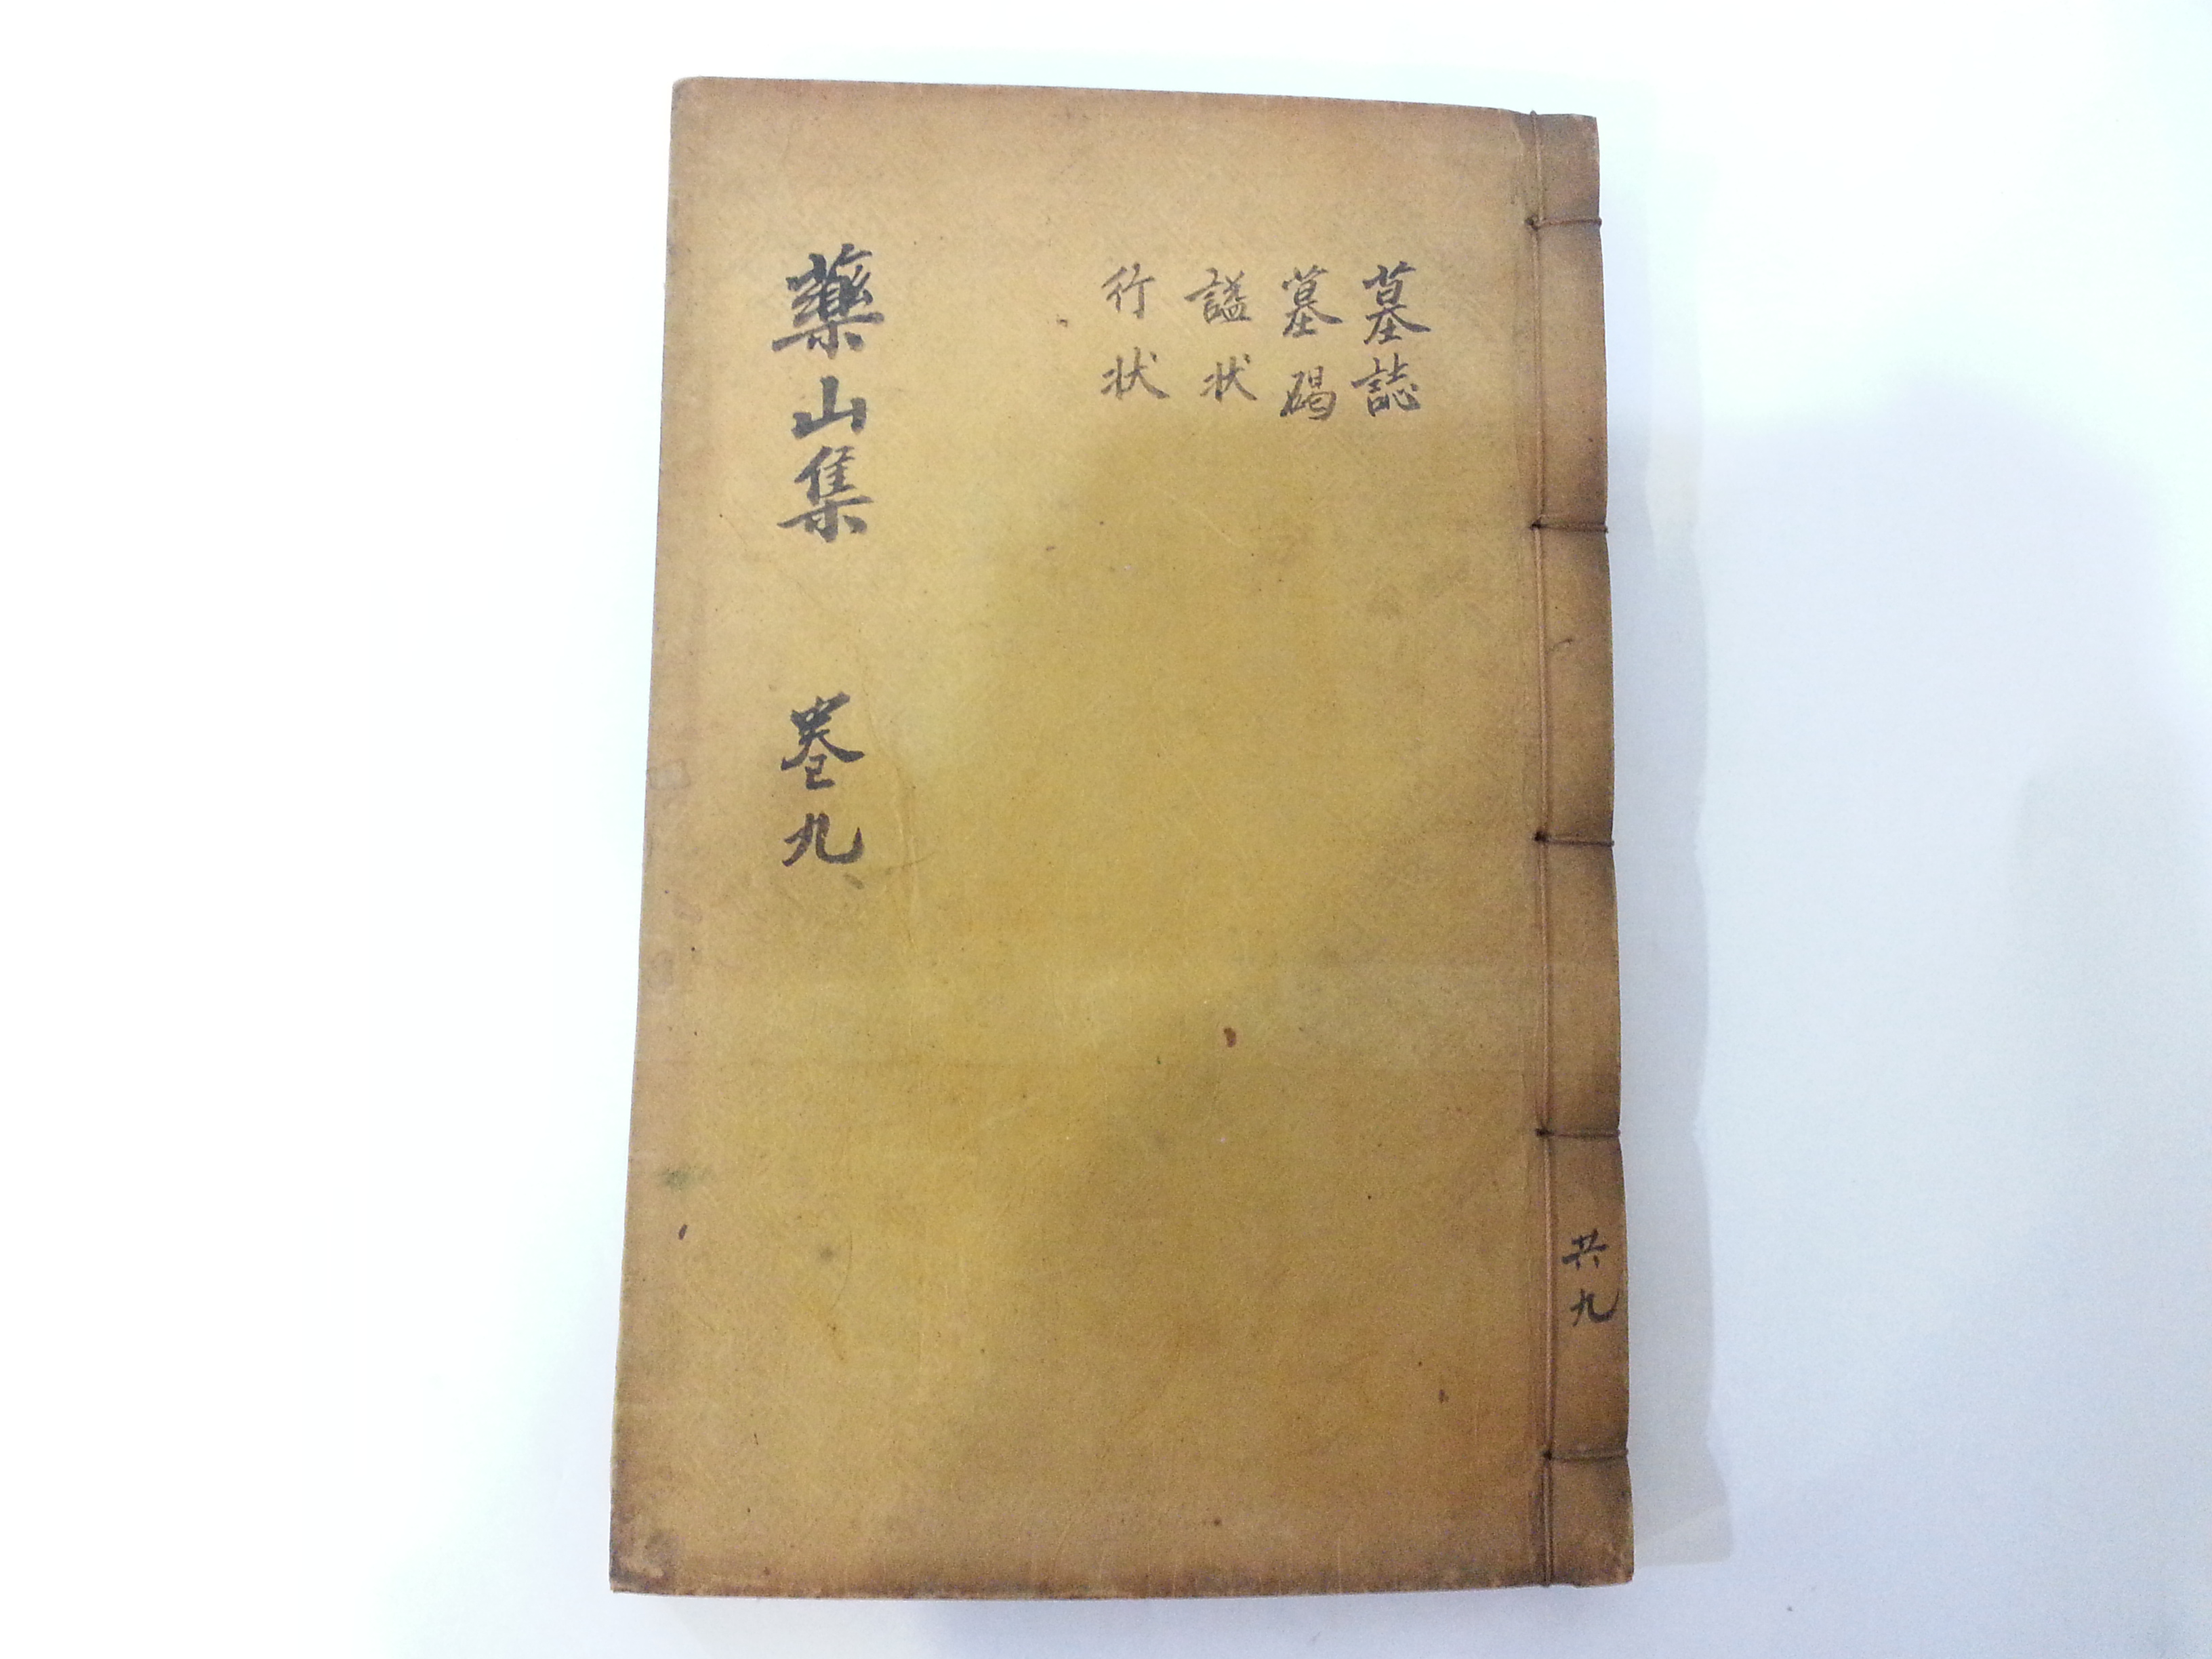 墓誌
墓碣
諡狀
行狀
藥山集 卷九
共九